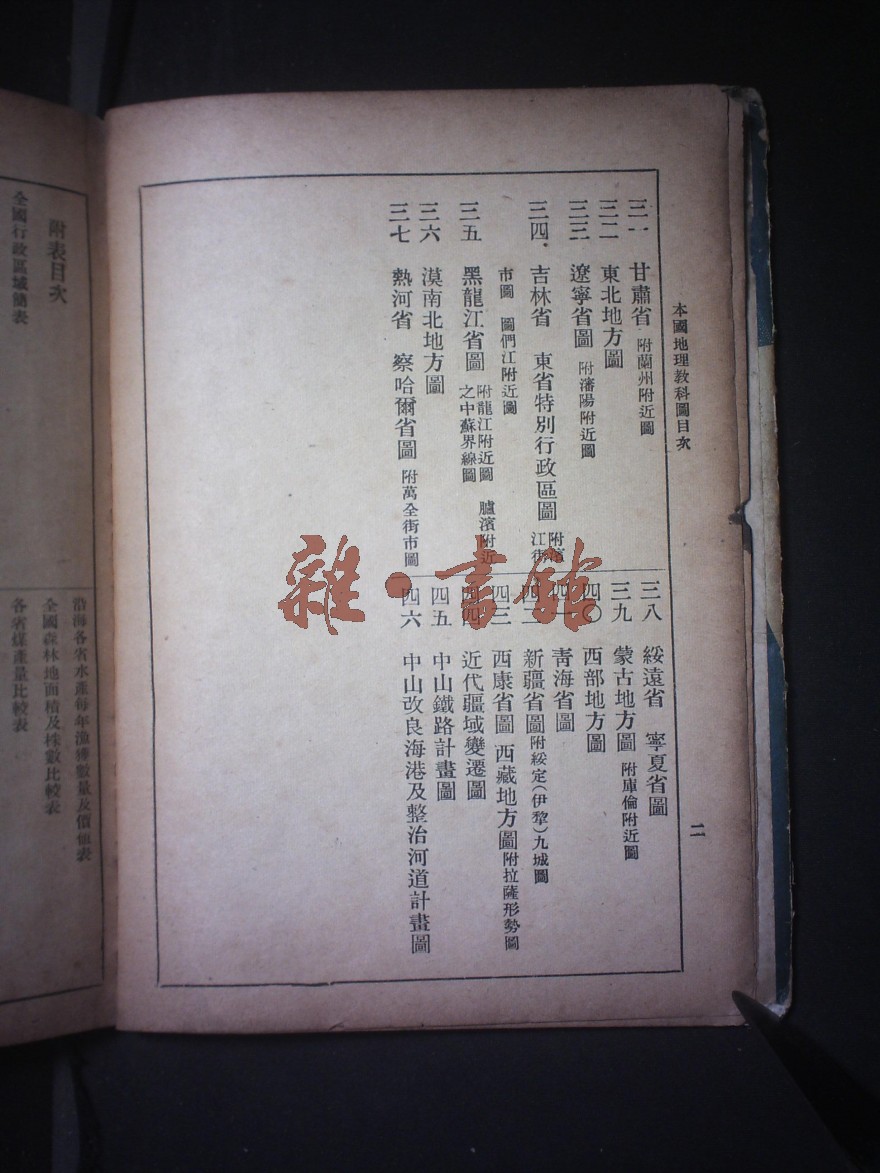 本國地理教科圖目次
三一 甘肅省 附蘭州附近圖
三二 東北地方圖
三三 遼寧省圖 附瀋陽附近圖
三四 吉林省 東省特別行政區圖 附濱江街
市圖 圖們江附近圖
三五 黑龍江省圖 附龍江附近圖 臚濱附近
之中蘇界線圖
三六 漠南北地方圖
三七 熱河省 察哈爾省圖 附萬全街市圖
三八 綏遠省 寧夏省圖
三九 蒙古地方圖 附庫倫附近圖
四〇 西部地方圖
四一 青海省圖
四二 新疆省圖 附綏定(伊犂)九城圖
四三 西康省圖 西藏地方圖 附拉薩形勢圖
四四 近代疆域變遷圖
四五 中山鐵路計畫圖
四六 中山改良海港及整治河道計畫圖
二
附表目次
全國行政區域簡表
沿海各省水產每年漁獲數量及價值表
全國森林地面積及株數比較表
各省煤產量比較表
雜·書館